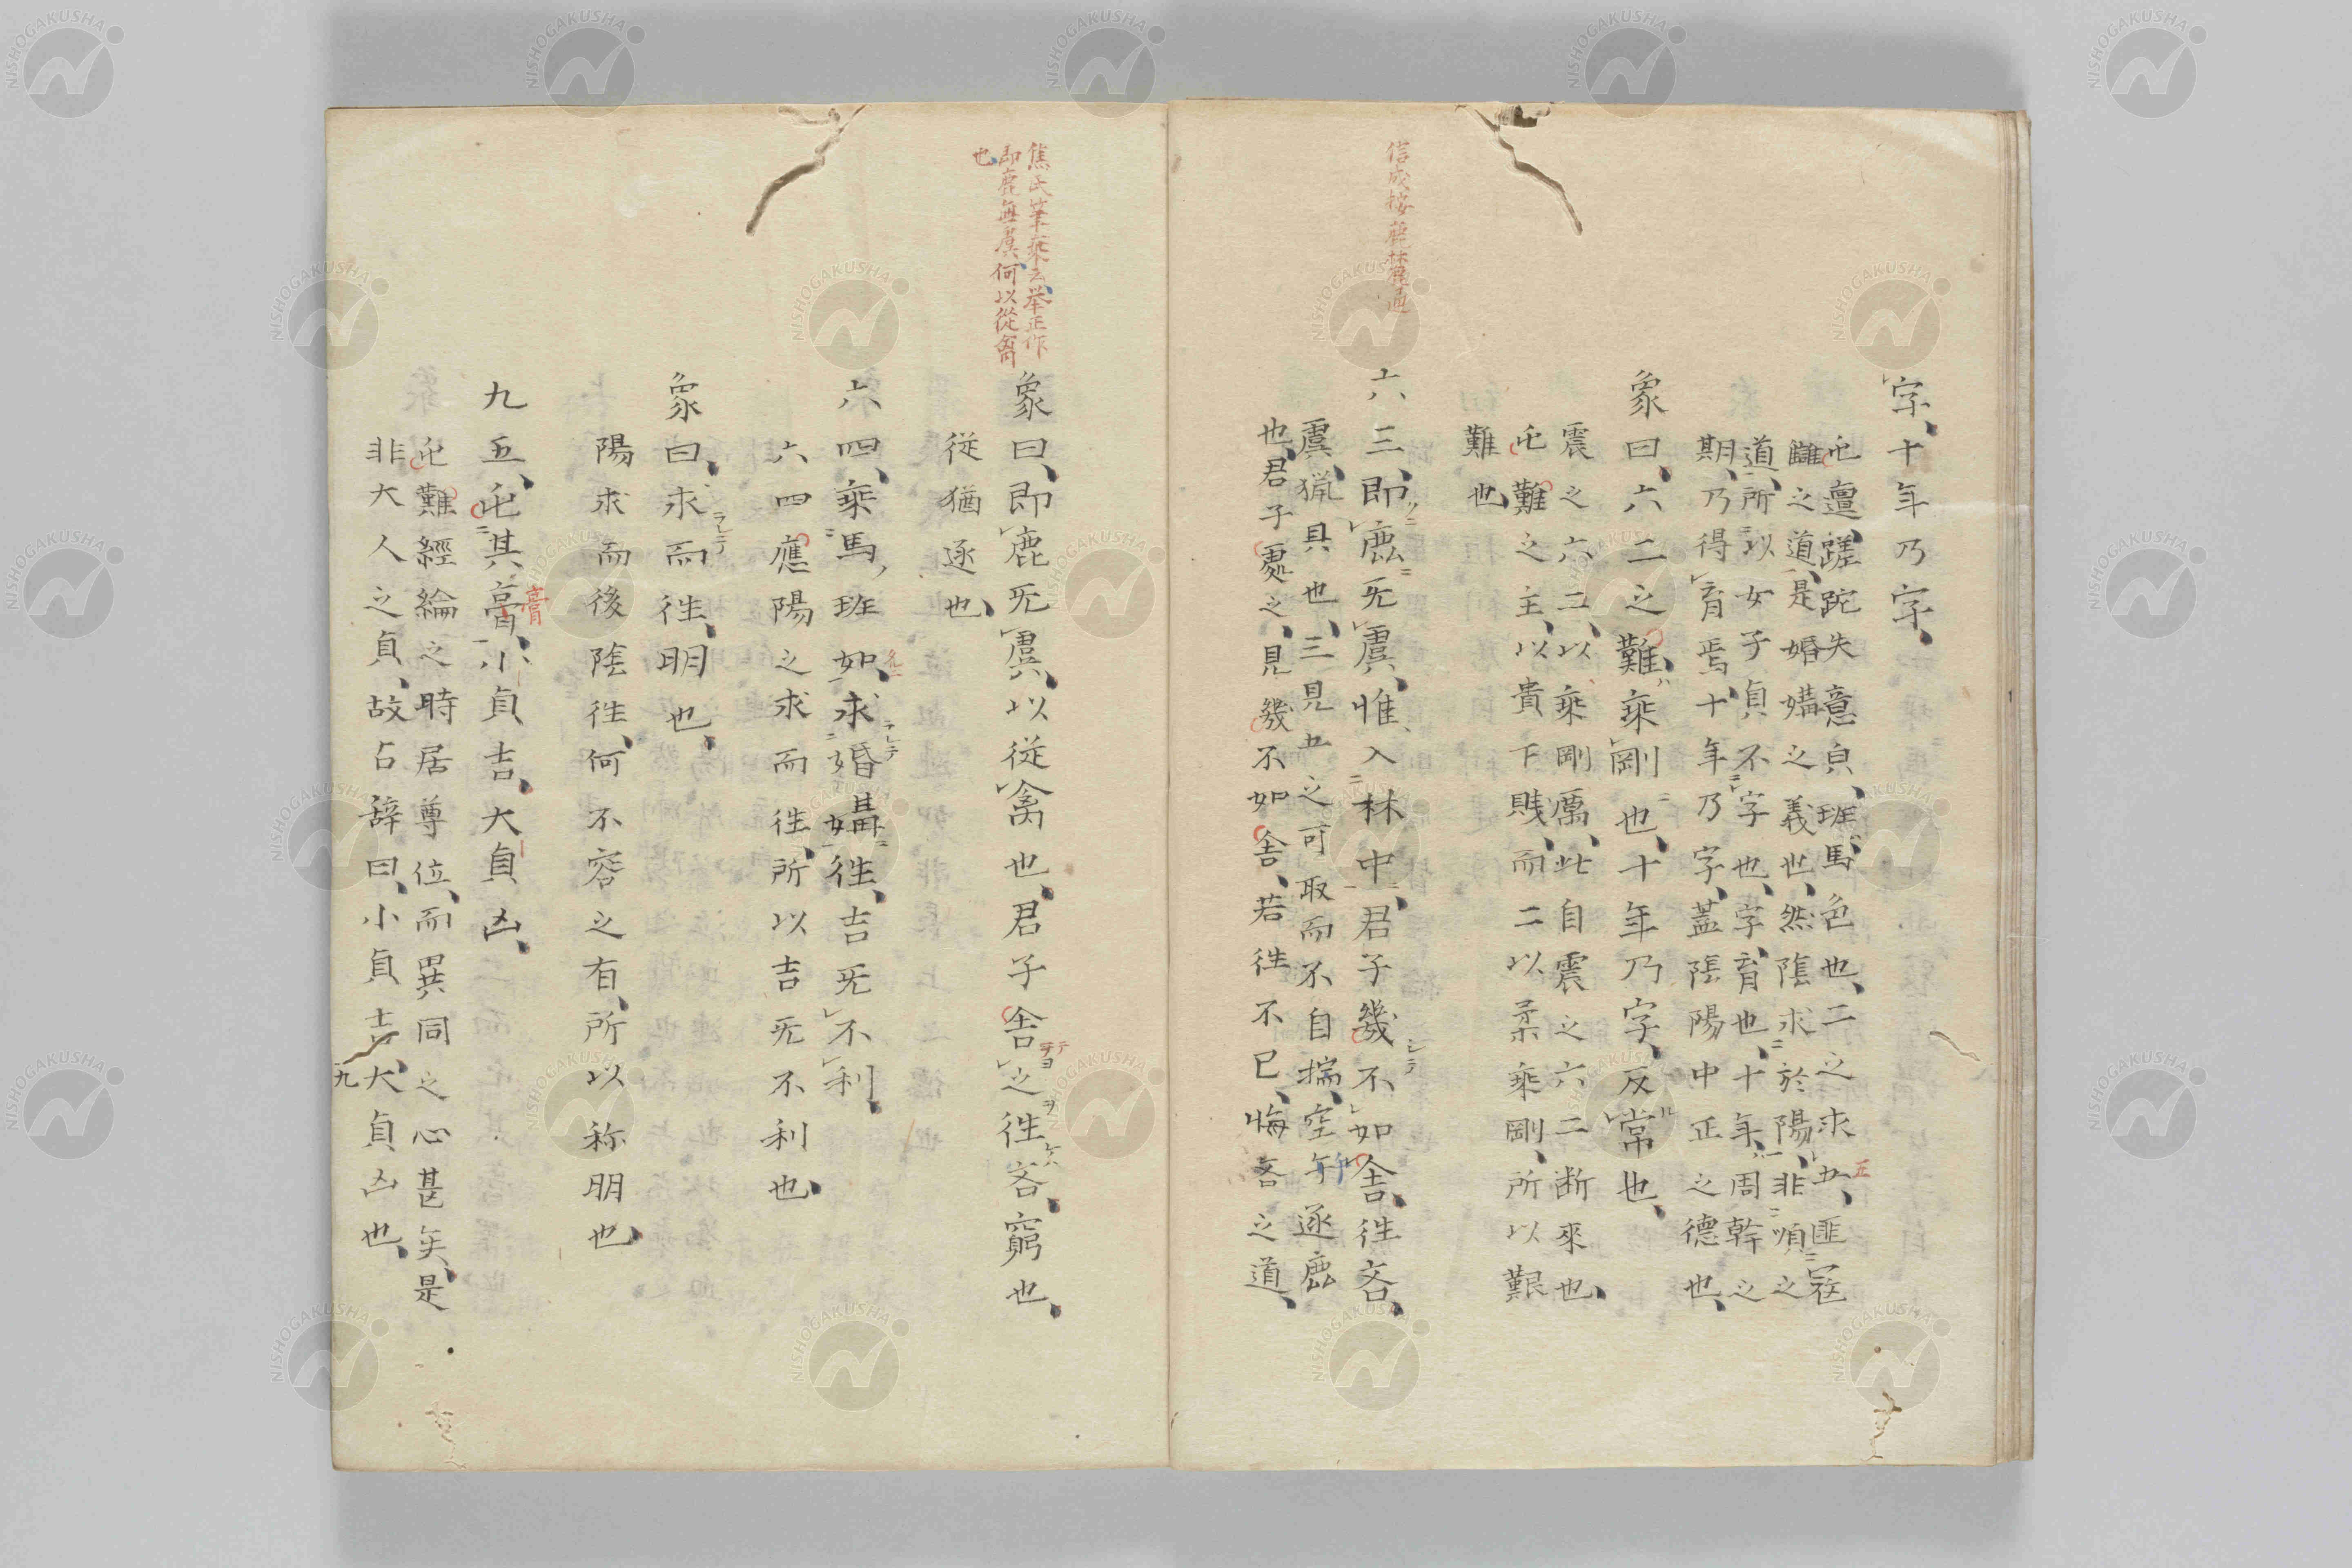 字、十年乃字、
屯邅、蹉跎失意皃、班馬色也、二之求五、匪冦
雠之道、是婚媾之義也、然陰求於陽、非順之
道、所以女子貞不字也、字、育也、十年、周幹之
期、乃得育焉、十年乃字、蓋陰陽中正之德也、
象曰、六二之難、乘剛也、十年乃字、反常也、
震之六二、以乘剛厲、此自震之六二断來也、
屯難之主、以貴下賎、而二以柔乘剛、所以艱
難也、
信成按鹿林麓通
六三、即鹿旡虞、惟入林中、君子幾不如舎、徃吝、
虞、猟具也、三見五之可取而不自揣、空手逐鹿
也、君子處之、見幾不如舎、若徃不已、悔吝之道、
焦氏筆乘云、举正作
即鹿無虞何以從禽
也
象曰、即鹿旡虞、以従禽也、君子舎之、徃吝、窮也、
従猶逐也、
六四、乘馬班如、求婚媾、徃、吉旡不利、
六四應陽之求而徃、所以吉旡不利也、
象曰、求而徃、明也、
陽求而後陰徃、何不容之有、所以称明也、
九五、屯其膏、小貞吉、大貞凶、
膏
屯難經綸之時居尊位、而異同之心甚矣、是
非大人之貞、故占辞曰、小貞吉、大貞凶也、
九
NISHOGAKUSHA